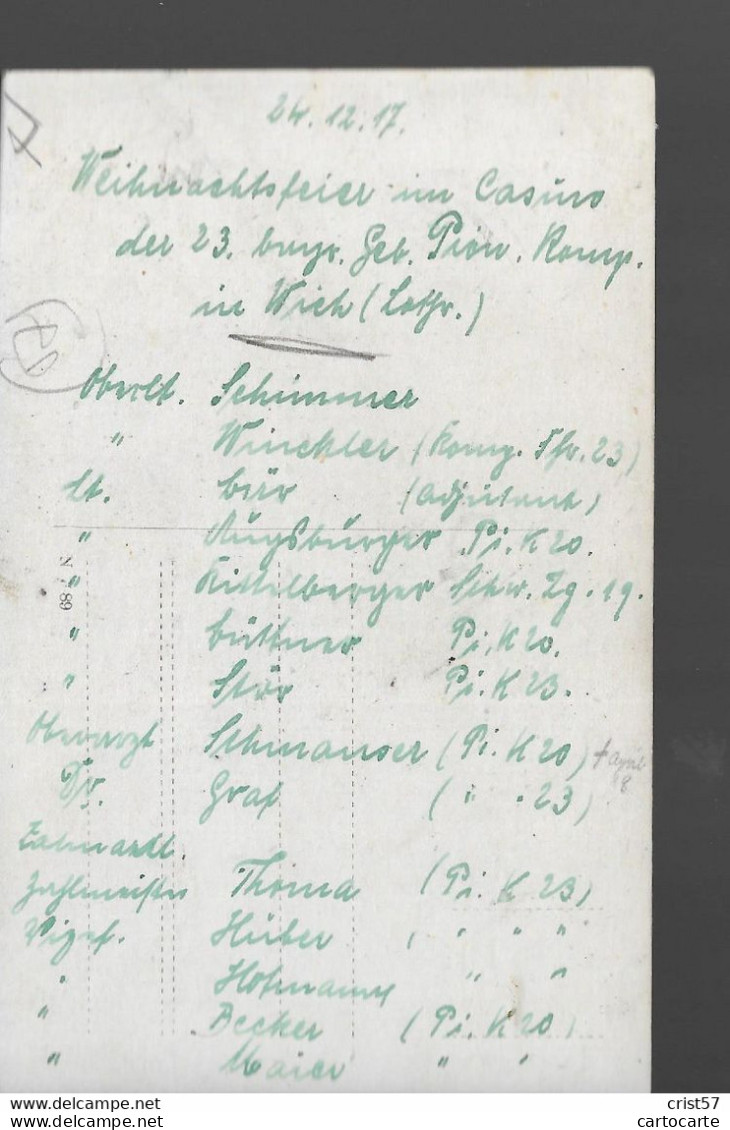 24.12.17.
Weihnachtsfeier im Casino
der 23. bayr. Geb. Pion. Komp.
in Wich (Lothr.)
Oberlt. Schimmer
" Winckler (Komp. Fhr. 23)
Lt. Bär (Adjutant)
" Augsburger Pi. K 20.
" Kistelberger Schw. Zg. 19.
" Büttner Pi. K 20.
" Stör Pi. K 23.
Oberarzt Schmauser (Pi. K 20) † April 18
Dr. Graf ( " " 23)
Zahnarzt
Zahlmeister Thoma (Pi. K 23)
Vizef. Huber ( " " "
" Hofmann " "
" Becker (Pi. K 20)
" Maier " "
N 7 89
crist57
cartocarte